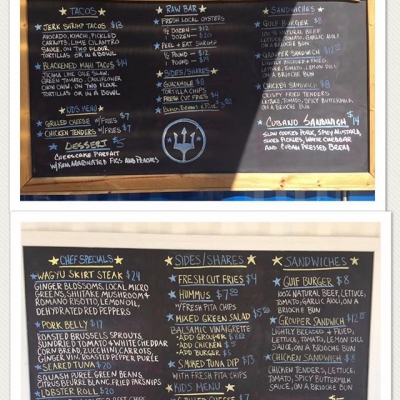 TACOS
JERK SHRIMP TACOS $13
AVOCADO, KIMCHI, PICKLED
CARROTS, LIME CILANTRO
SAUCE, ON TWO FLOUR
TORTILLAS OR IN A BOWL
BLACKENED MAHI TACOS $14
JICAMA LIME COLE SLAW,
GREEN TOMATO, CAULIFLOWER
CHOW CHOW, ON TWO FLOUR
TORTILLAS OR IN A BOWL
KIDS MENU
GRILLED CHEESE W/FRIES $7
CHICKEN TENDERS W/FRIES $7
DESSERT $5
CHEESECAKE PARFAIT
FIGS AND PEACHES
RAW BAR
FRESH LOCAL OYSTERS
1/2 DOZEN - $12
PEEL + EAT SHRIMP
1/2 POUND - $
SIDES/SHARES
GUACAMOLE $8
TORTILLA CHIPS
FRESH CUT FRIES $4
SANDWICHES
GULF BURGER $8
100% NATURAL BEEF
LETTUCE, TOMATO, GARLIC AIOLI
ON A BRIOCHE BUN
GROUPER SANDWICH $12
LIGHTLY BREADED + FRIED,
LETTUCE, TOMATO, LEMON DILL
SAUCE, ON A BRIOCHE BUN
CHICKEN SANDWICH $8
CRISPY FRIED TENDERS
LETTUCE, TOMATO, SPICY BUTTERMILK
ON A BRIOCHE BUN
CUBANO SANDWICH $14
SLOW COOKED PORK, SPICY MUSTARD,
SLICED PICKLES, WHITE CHEDDAR
AND CUBAN PRESSED BREAD
CHEF SPECIALS
WAGYU SKIRT STEAK $24
GINGER BLOSSOMS, LOCAL MICRO
GREENS, SHIITAKE MUSHROOM +
ROMANO RISOTTO, LEMON OIL,
DEHYDRATED RED PEPPERS
PORK BELLY $17
ROASTED BRUSSELS SPROUTS,
SUNDRIED TOMATO + WHITE CHEDDAR
CORN BREAD, ZUCCHINI, CARROTS,
GINGER VIN, ROASTED PEPPER PURÉE
SEARED TUNA $20
SQUASH PUREE, GREEN BEANS,
CITRUS BEURRE BLANC, FRIED PARSNIPS
LOBSTER ROLL $20
SIDES/SHARES
FRESH CUT FRIES $4
HUMMUS $7
W/FRESH PITA CHIPS
MIXED GREEN SALAD $5
BALSAMIC VINAIGRETTE
+ADD GROUPER $
+ADD CHICKEN $
+ADD BURGER $5
SMOKED TUNA DIP $13
WITH FRESH PITA CHIPS
KIDS MENU
SANDWICHES
GULF BURGER $8
100% NATURAL BEEF, LETTUCE,
TOMATO, GARLIC AIOLI, ON A
BRIOCHE BUN
GROUPER SANDWICH $12
LIGHTLY BREADED + FRIED,
LETTUCE, TOMATO, LEMON DILL
SAUCE, ON A BRIOCHE BUN
CHICKEN SANDWICH $8
CHICKEN TENDERS, LETTUCE,
TOMATO, SPICY BUTTERMILK
SAUCE, ON A BRIOCHE BUN